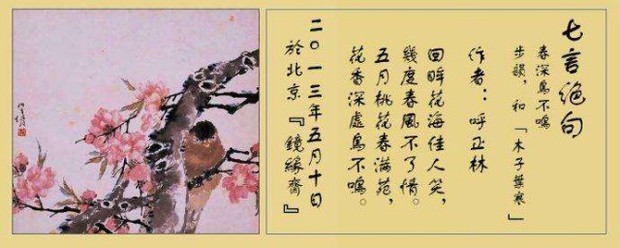 七言绝句
春深鸟不鸣
步韻，和「木子葉寒」
作者：呼正林
回眸花海佳人笑，
幾度春風不了情。
五月桃花春满苑，
花香深處鸟不鳴。
二〇一三年五月十日
於北京『鏡緣齋』